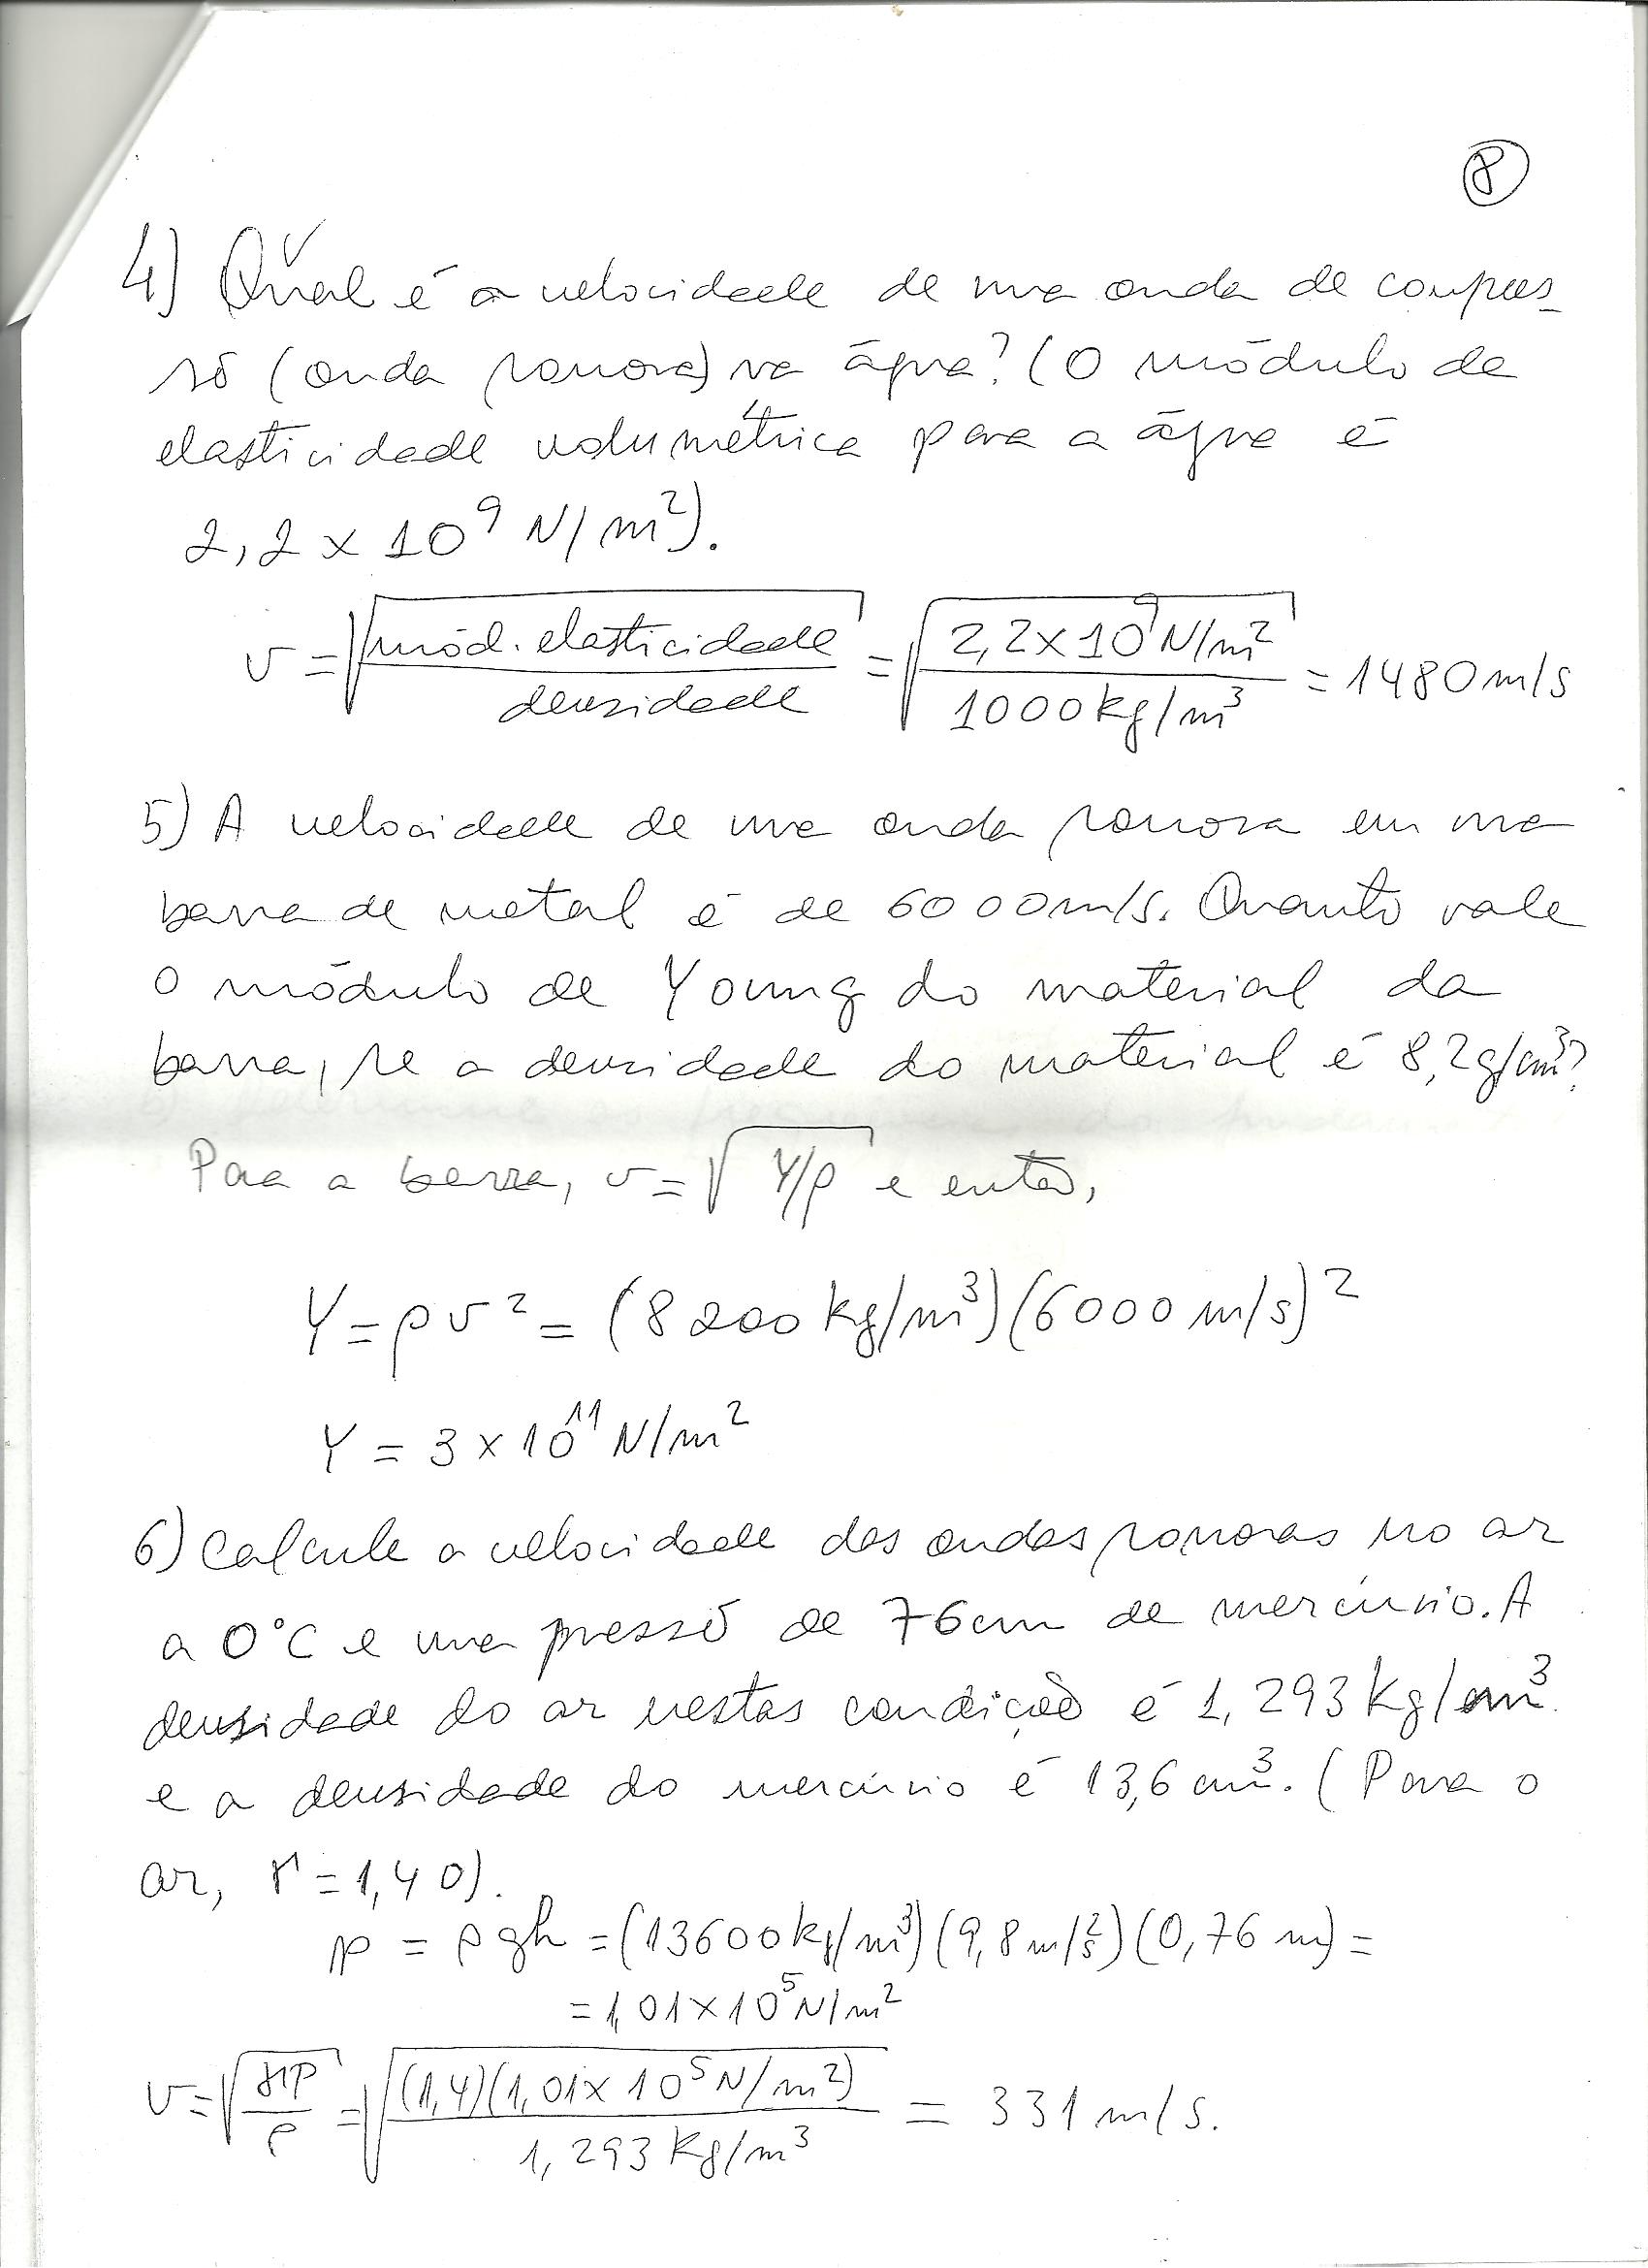 8
4) Qual é a velocidade de uma onda de compres-
são (onda sonora) na água? (O módulo de
elasticidade volumétrica para a água é
2,2 x 10⁹ N/m²).
v = √(mód. elasticidade / densidade) = √(2,2 x 10⁹ N/m² / 1000 kg/m³) = 1480 m/s
5) A velocidade de uma onda sonora em uma
barra de metal é de 6000 m/s. Quanto vale
o módulo de Young do material da
barra, se a densidade do material é 8,2 g/cm³?
Para a barra, v = √(Y/ρ) e então,
Y = ρv² = (8200 kg/m³)(6000 m/s)²
Y = 3 x 10¹¹ N/m²
6) Calcule a velocidade das ondas sonoras no ar
a 0°C e uma pressão de 76 cm de mercúrio. A
densidade do ar nestas condição é 1,293 Kg/m³
e a densidade do mercúrio é 13,6 cm³. (Para o
ar, γ = 1,40).
p = ρgh = (13600 kg/m³)(9,8 m/s²)(0,76 m) =
= 1,01 x 10⁵ N/m²
v = √(γp / ρ) = √((1,4)(1,01 x 10⁵ N/m²) / 1,293 Kg/m³) = 331 m/s.